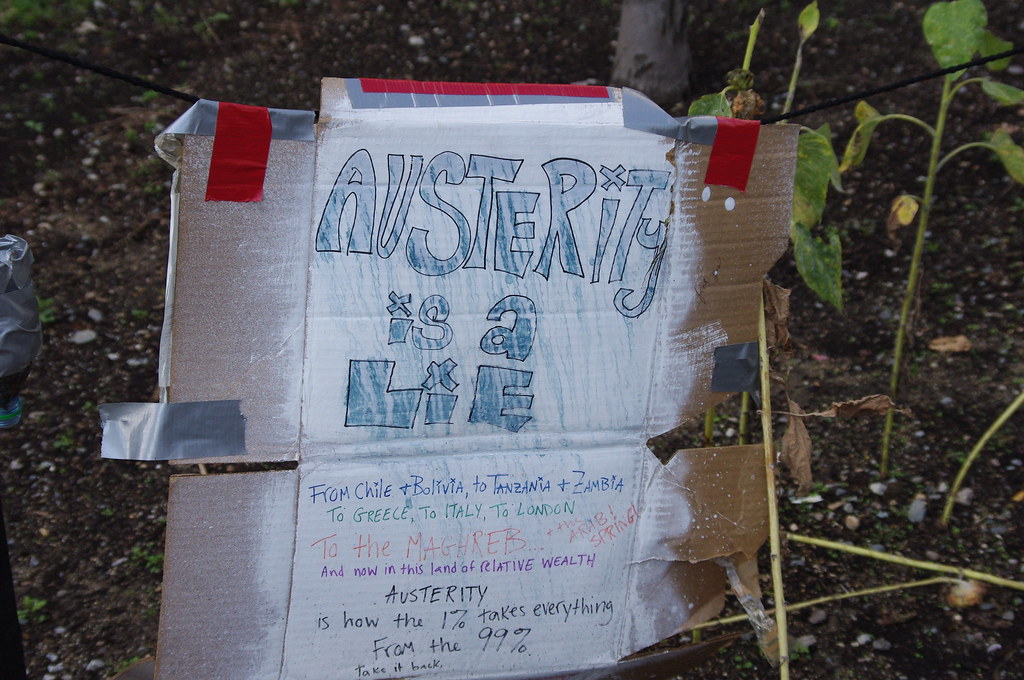 AUSTERiTy
is a
LiE
FROM CHiLE + BOLiViA, to TANZANiA + ZAMBiA
To GREECE, To ITALY, To LONDON
To the MAGHREB... + the ARAB! SPRING!
And now in this land of RELATIVE WEALTH
AUSTERITY
is how the 1% takes everything
From the 99%.
take it back.